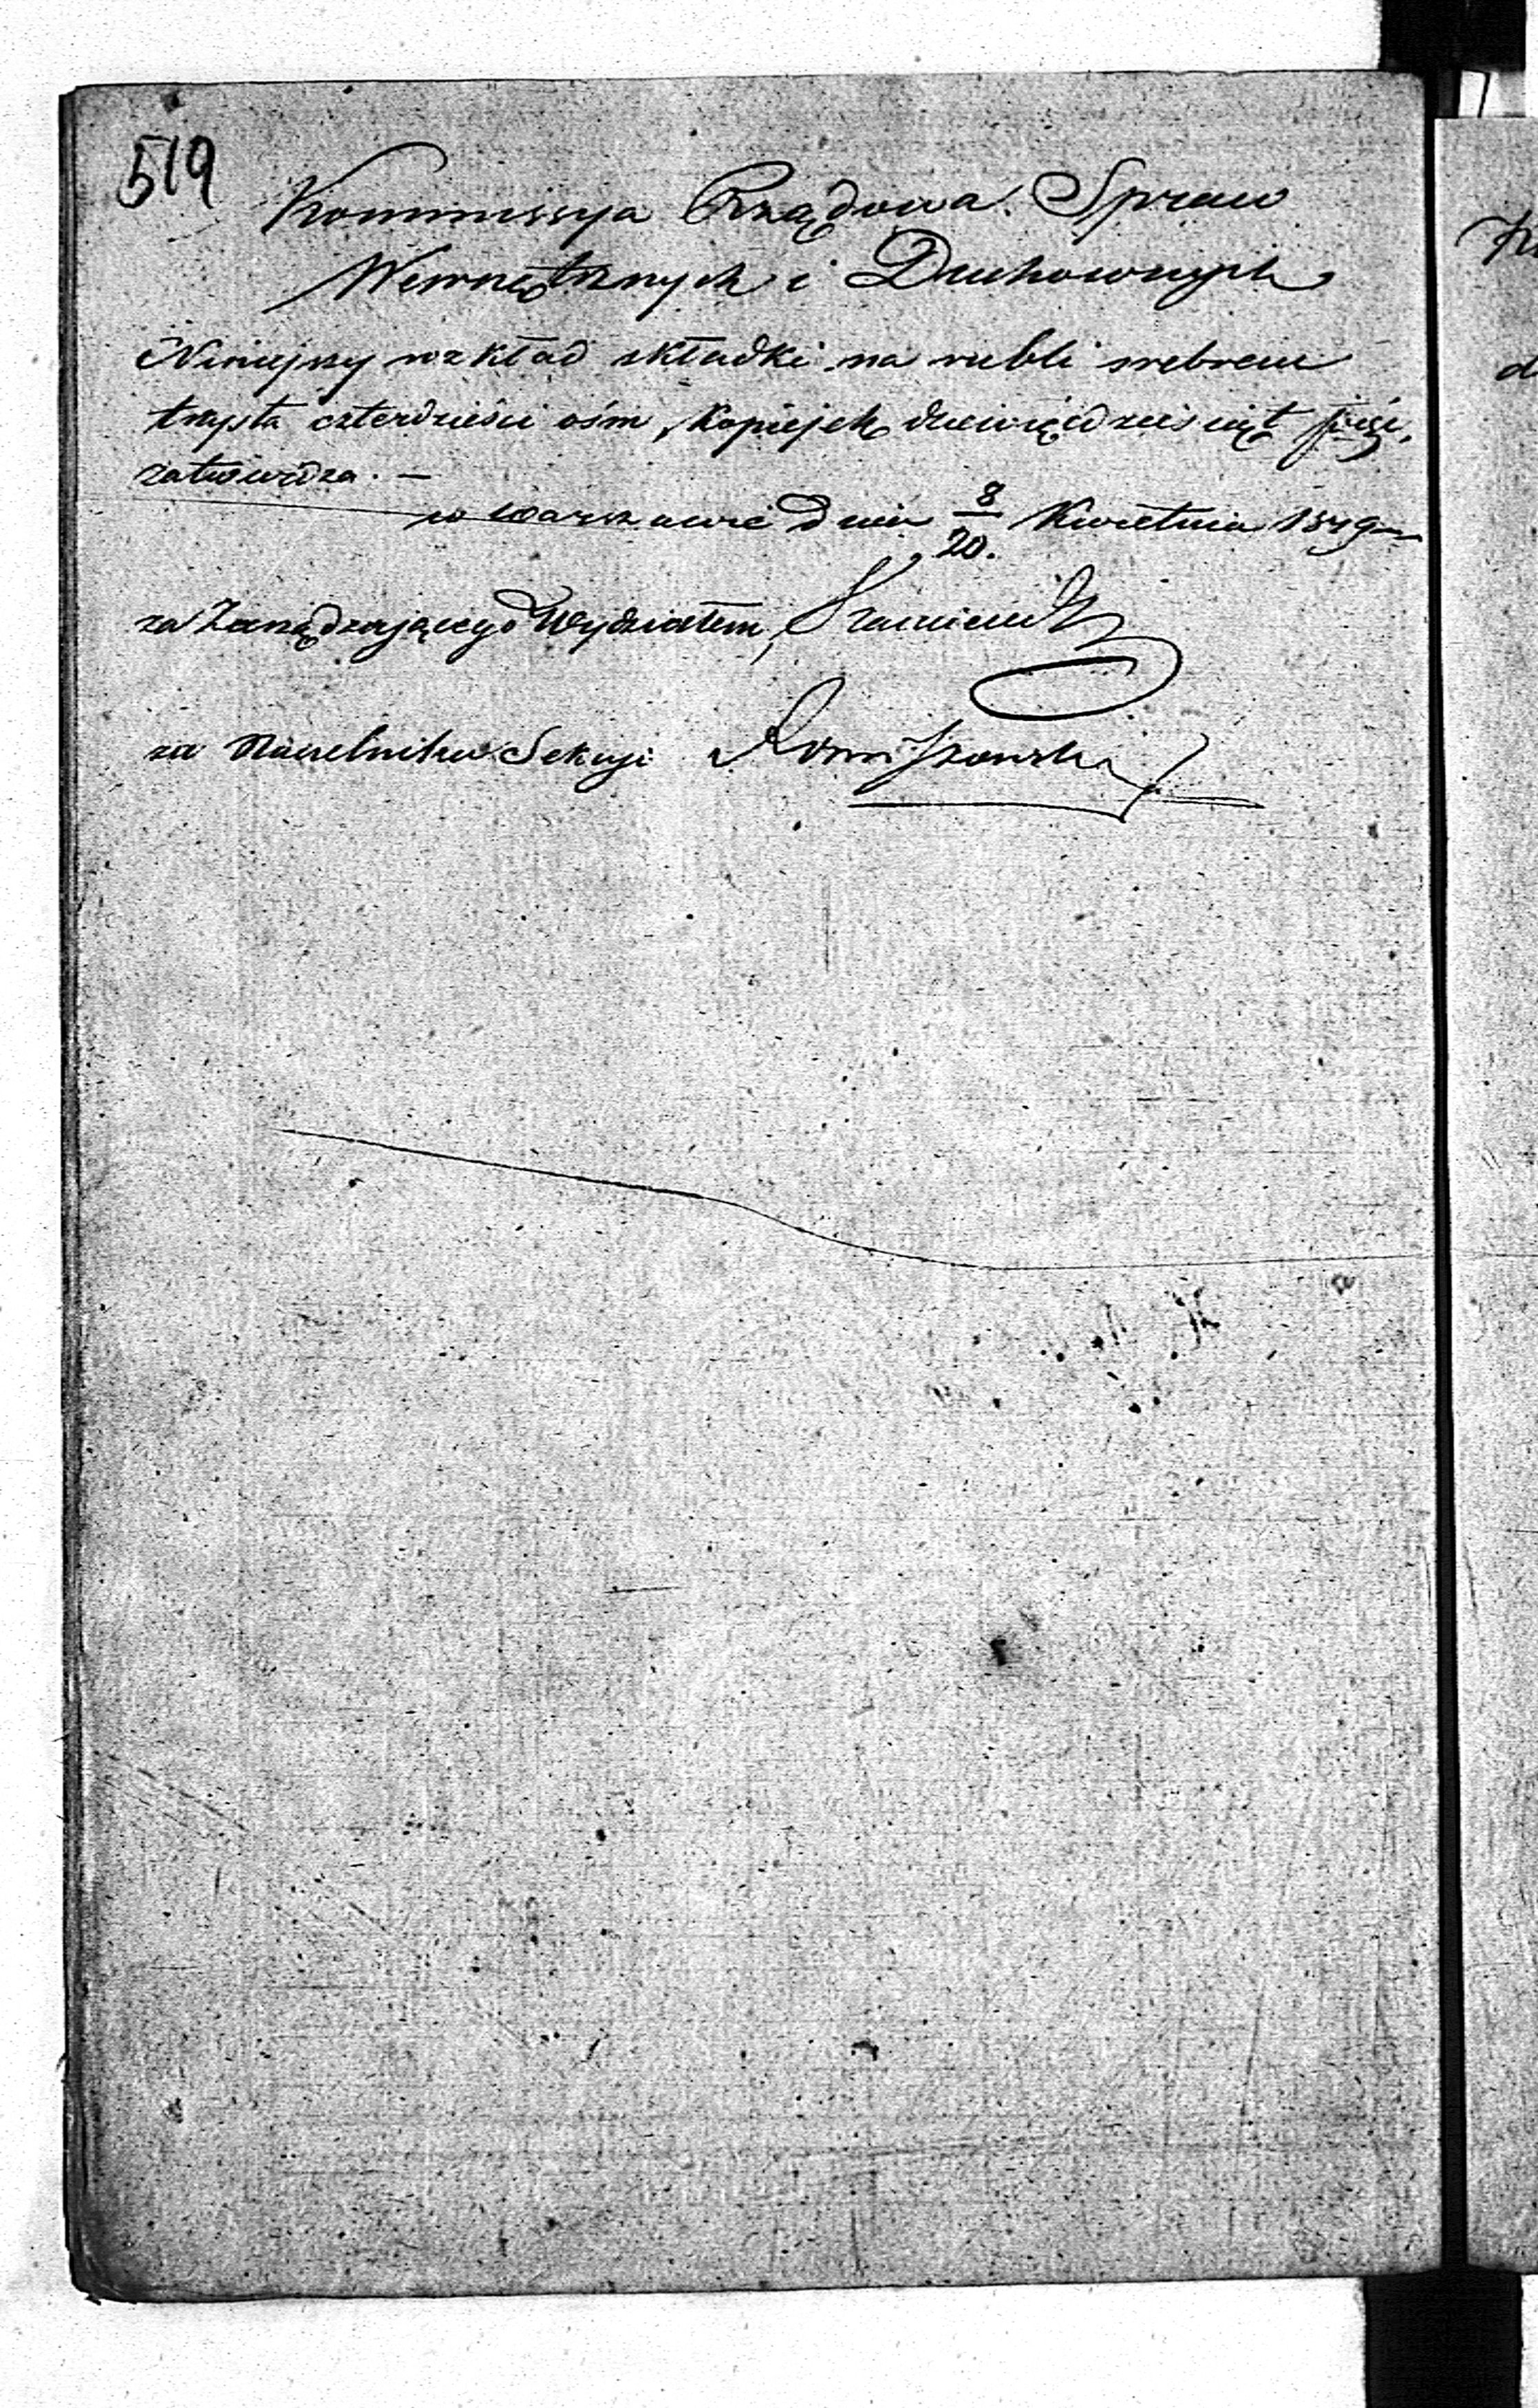 519
Kommissya Rządowa Spraw
Wewnętrznych i Duchownych
Niniejszy rozkład składki na rubli srebrem
trzysta czterdzieści ośm, kopiejek dziewięćdziesiąt pięć,
zatwierdza. —
w Warszawie dnia 8/20. Kwietnia 1849
za Zarządzającego Wydziałem,
za Naczelnika Sekcyi